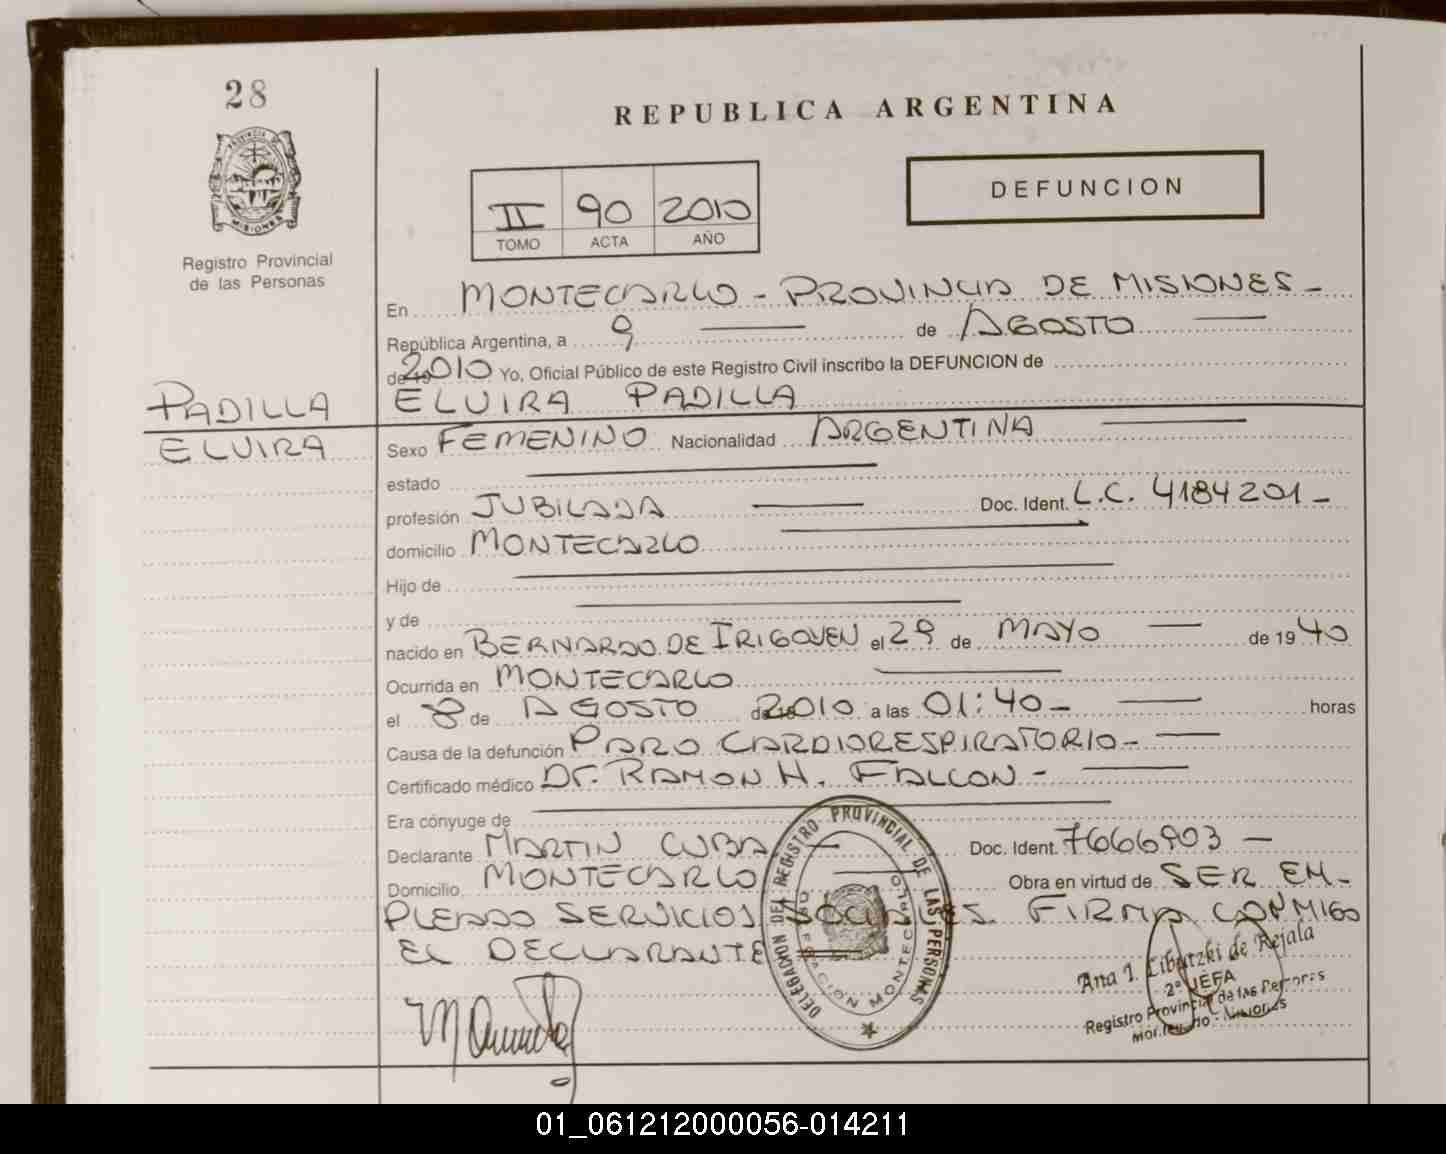 28
PROVINCIA DE
MISIONES
Registro Provincial
de las Personas
REPUBLICA ARGENTINA
II 90 2010
TOMO ACTA AÑO
DEFUNCION
En MONTECARLO - PROVINCIA DE MISIONES -
República Argentina, a 9 de AGOSTO
de 2010 Yo, Oficial Público de este Registro Civil inscribo la DEFUNCION de
PADILLA ELVIRA PADILLA
ELVIRA Sexo FEMENINO Nacionalidad ARGENTINA
estado
profesión JUBILADA Doc. Ident. L.C. 4184201 -
domicilio MONTECARLO
Hijo de
y de
nacido en BERNARDO DE IRIGOYEN el 29 de MAYO de 1940
Ocurrida en MONTECARLO
el 8 de AGOSTO de 2010 a las 01:40 - horas
Causa de la defunción PARO CARDIORESPIRATORIO -
Certificado médico Dr. RAMON H. FALCON -
Era cónyuge de
Declarante MARTIN CUBA Doc. Ident. 7666903
Domicilio MONTECARLO Obra en virtud de SER EM-
PLEADO SERVICIOS SOCIALES. FIRMA CONMIGO
EL DECLARANTE
DELEGACION DEL REGISTRO PROVINCIAL DE LAS PERSONAS
DELEGACIÓN MONTECARLO
Ana I. Libutzki de Rejala
2° JEFA
Registro Provincial de las Personas
Montecarlo - Misiones
01_061212000056-014211